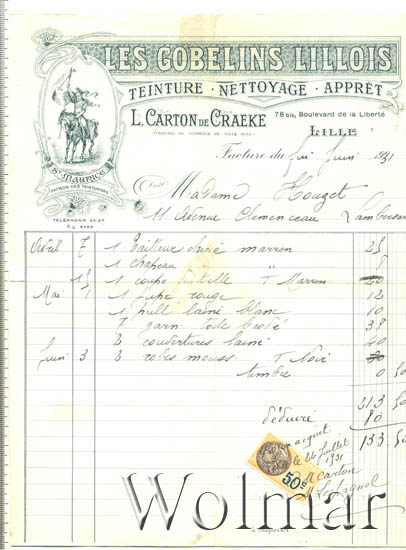 LES GOBELINS LILLOIS
TEINTURE · NETTOYAGE · APPRÊT
L. CARTON DE CRAEKE
78 bis, Boulevard de la Liberté
LILLE
ST MAURICE
PATRON DES TEINTURIERS
TÉLÉPHONE
Facture du fin Juin 1931
Madame Houzet
11 Avenue Clemenceau Lambersart
Avril 7 1 tailleur marron 25
1 chapeau 8
1 coupe T. Marron 20
Mai 1 jupe rouge 12
1 pull laine blanc 10
7 garn. toile brodé 38
2 couvertures laine 40
Juin 3 2 robes T. Noir
timbre 0
213 50
déduire 80
133 50
Pour acquit
le 24 juillet
1931
Carton
50c
Wolmar